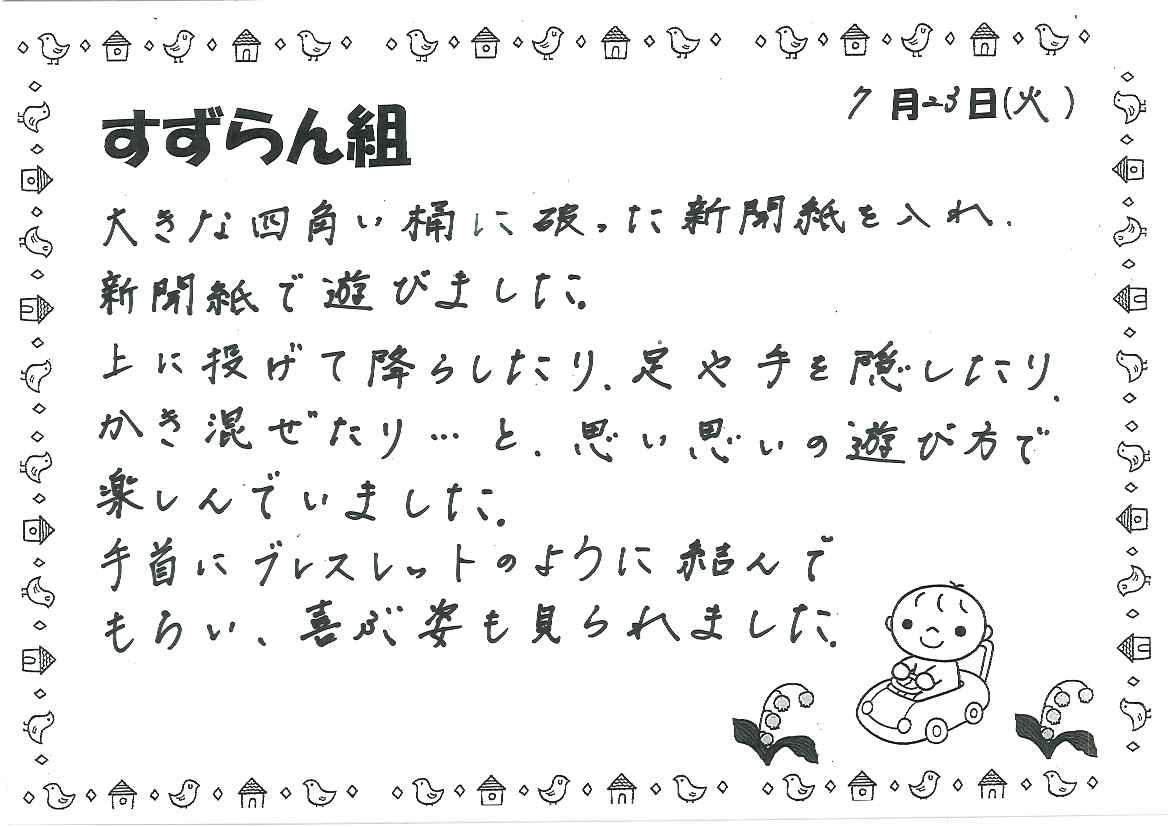 7月23日(火)
すずらん組
大きな四角い桶に破った新聞紙を入れ、
新聞紙で遊びました。
上に投げて降らしたり、足や手を隠したり、
かき混ぜたり…と、思い思いの遊び方で
楽しんでいました。
手首にブレスレットのように結んで
もらい、喜ぶ姿も見られました。